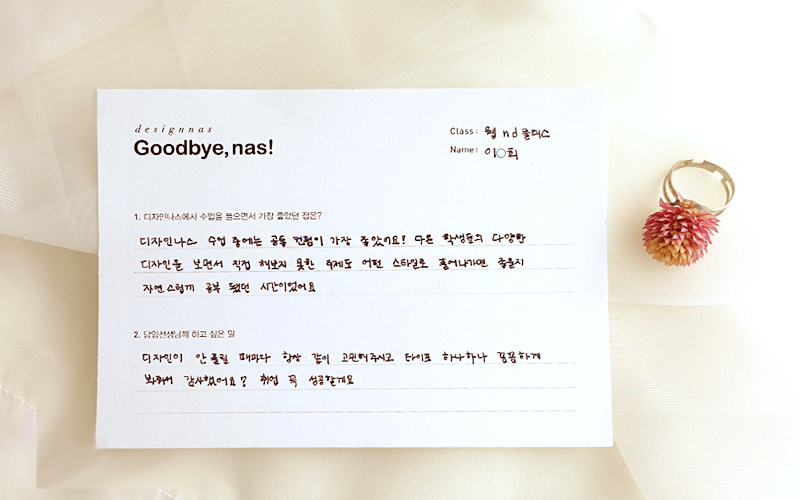 designnas
Goodbye, nas!
Class : 웹 nd 클래스
Name : 이○희
1. 디자인나스에서 수업을 들으면서 가장 좋았던 점은?
디자인나스 수업 중에는 공동 컨펌이 가장 좋았어요! 다른 학생들의 다양한
디자인을 보면서 직접 해보지 못한 주제도 어떤 스타일로 풀어나가면 좋을지
자연스럽게 공부 됐던 시간이었어요
2. 담임선생님께 하고 싶은 말
디자인이 안 풀릴 때마다 항상 같이 고민해주시고 타이포 하나하나 꼼꼼하게
봐줘서 감사했어요? 취업 꼭 성공할게요